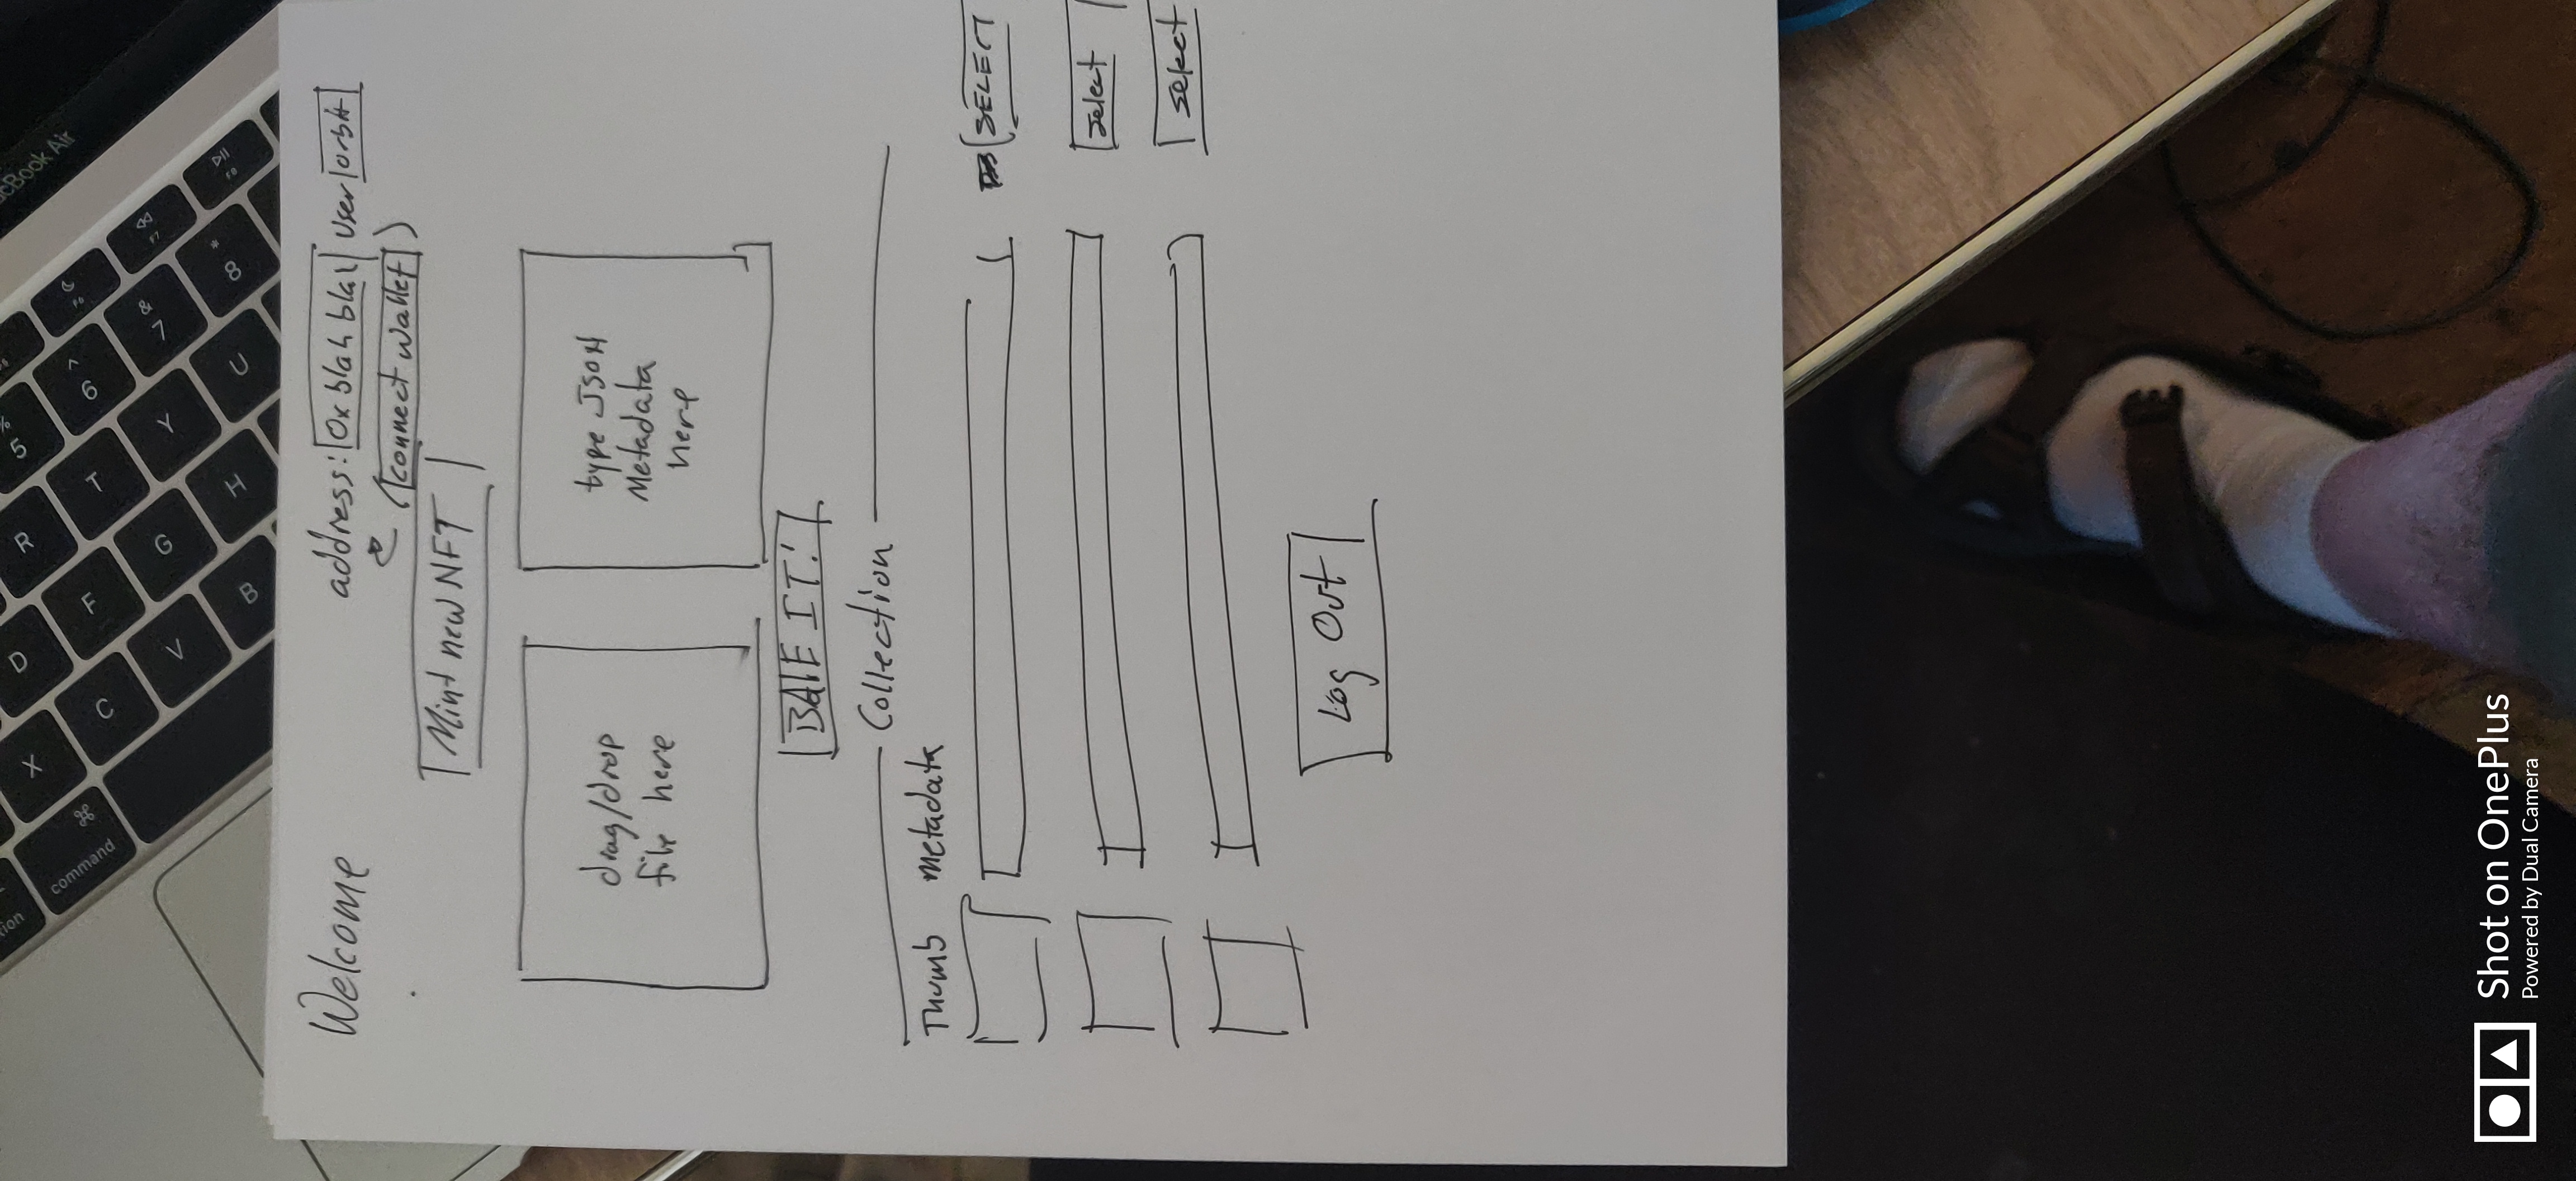 MacBook Air
command ⌘
X D R 5 %
C F T 6 ^
V G Y 7 &
B H U 8 *
F6
F7
F8
Welcome
address: 0x blah blah user orbit
(connect wallet)
Mint new NFT
drag/drop
file here
type JSON
Metadata
here
IT!
Collection
Thumb metadata
SELECT
select
select
Log Out
Shot on OnePlus
Powered by Dual Camera